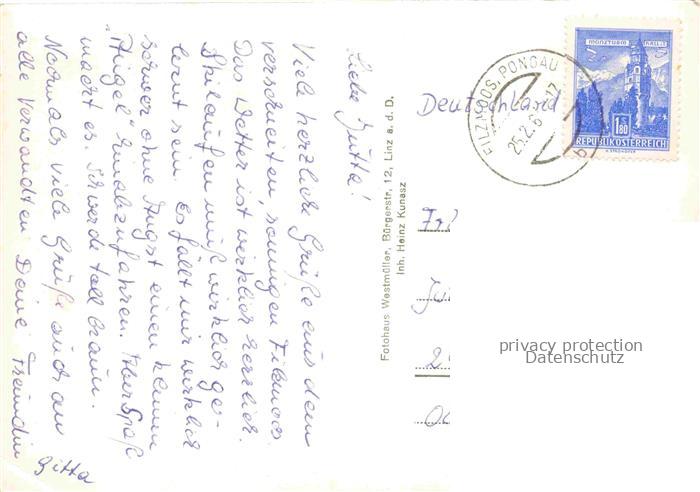 Liebe Jutta!
Viele herzliche Grüße aus dem
verschneiten, sonnigen Filzmoos.
Das Wetter ist wirklich herrlich.
Skilaufen muß wirklich ge-
lernt sein. Es fällt mir wirklich
schwer ohne Angst einen kleinen
"Hügel" runterzufahren. Aber Spaß
macht es. Ich werde toll braun.
Nochmals viele Grüße auch an
alle Verwandten Deine Freundin
Gitta
Fotohaus Westmüller, Bürgerstr. 12, Linz a. d. D.
Inh. Heinz Kunasz
FILZMOOS, PONGAU
25.2.6
MÜNZTURM HALL I.T.
S 1.80
REPUBLIK ÖSTERREICH
Deutschland
privacy protection
Datenschutz